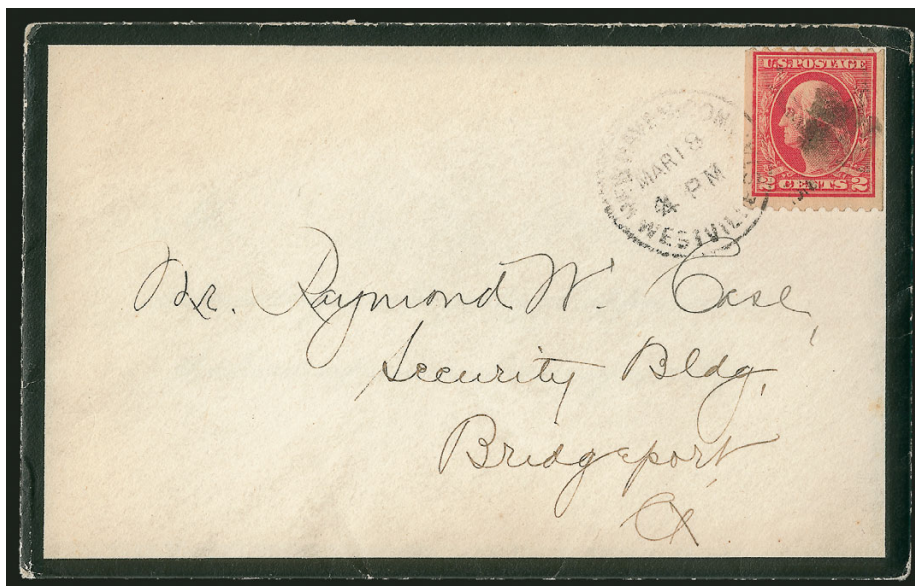 U.S. POSTAGE
2 CENTS 2
NEW HAVEN, CONN.
MAR 18
4 PM
WESTVILLE STA.
Mr. Raymond W. Case,
Security Bldg,
Bridgeport
Ct.